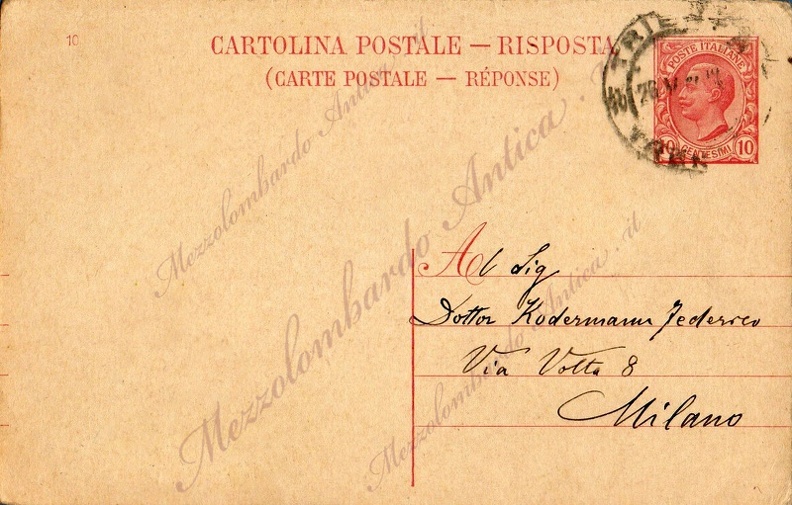 10
CARTOLINA POSTALE — RISPOSTA
(CARTE POSTALE — RÉPONSE)
POSTE ITALIANE
10 CENTESIMI 10
Al Sig
Dottor Kodermann Federico
Via Volta 8
Milano
Mezzolombardo Antica.it
Mezzolombardo Antica.it
Mezzolombardo Antica.it